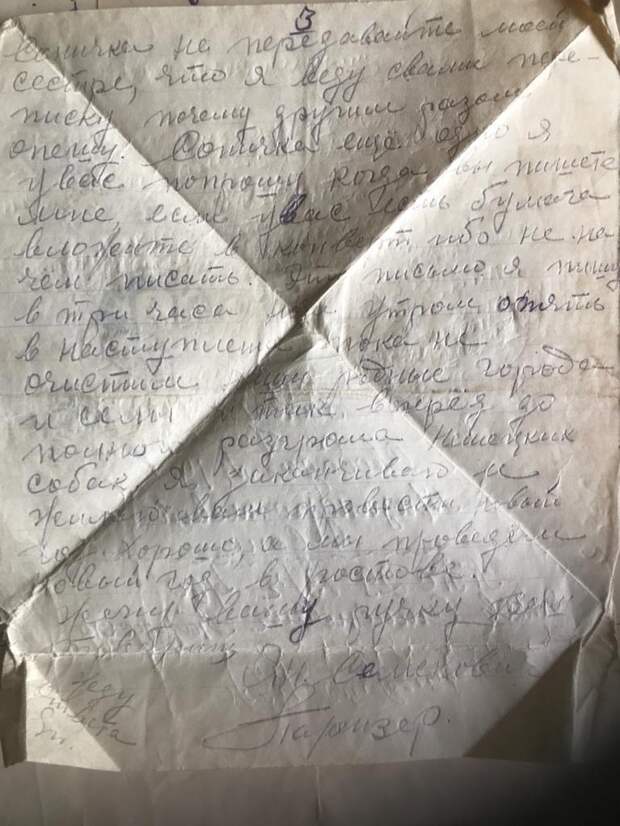 3
Соничка не передавайте моей
сестре, что я веду с вами пере-
писку почему другим разом
опешу. Соничка ещё одно я
у вас попрошу когда вы пишете
мне, если у вас есть бумага
вложите в конверт, ибо не на
чем писать. Это письмо я пишу
в три часа утром опять
в наступление пока не
очистим родные города
и села и так вперед до
полного разгрома немецких
собак я заканчиваю и
желаю вам провести новый
год хорошо, а мы проведем
новый год в Ростове.
Жму Вашу ручку
Семенович
Паризер.
Жду
ответа